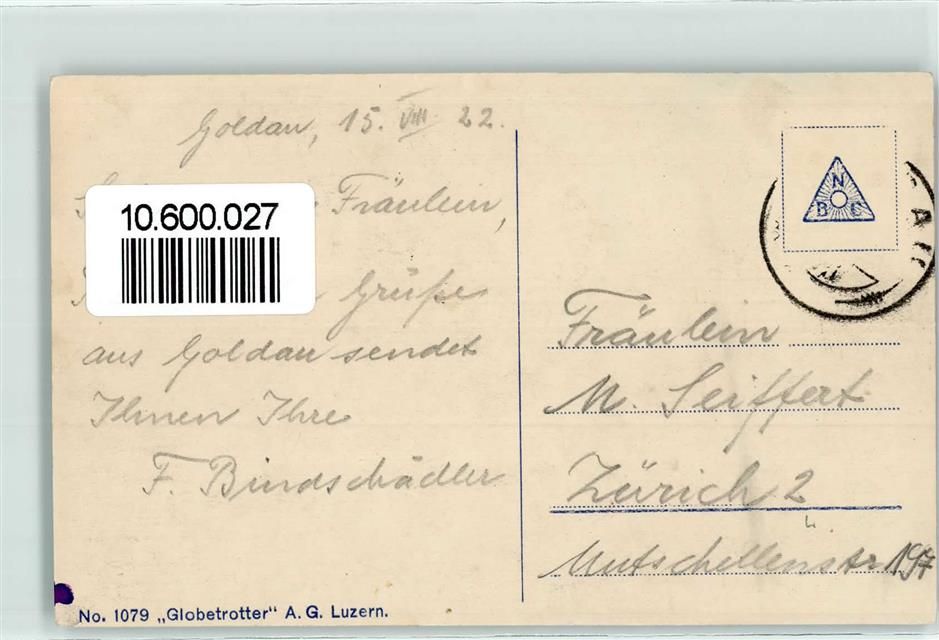 Goldau, 15. VIII 22.
Fräulein,
10.600.027
Grüße
aus Goldau sendet
Ihnen Ihre
F. Bindschädler
No. 1079 „Globetrotter" A. G. Luzern.
N
B C
Fräulein
M. Seiffert
Zürich 2
Mutschellenstr 197